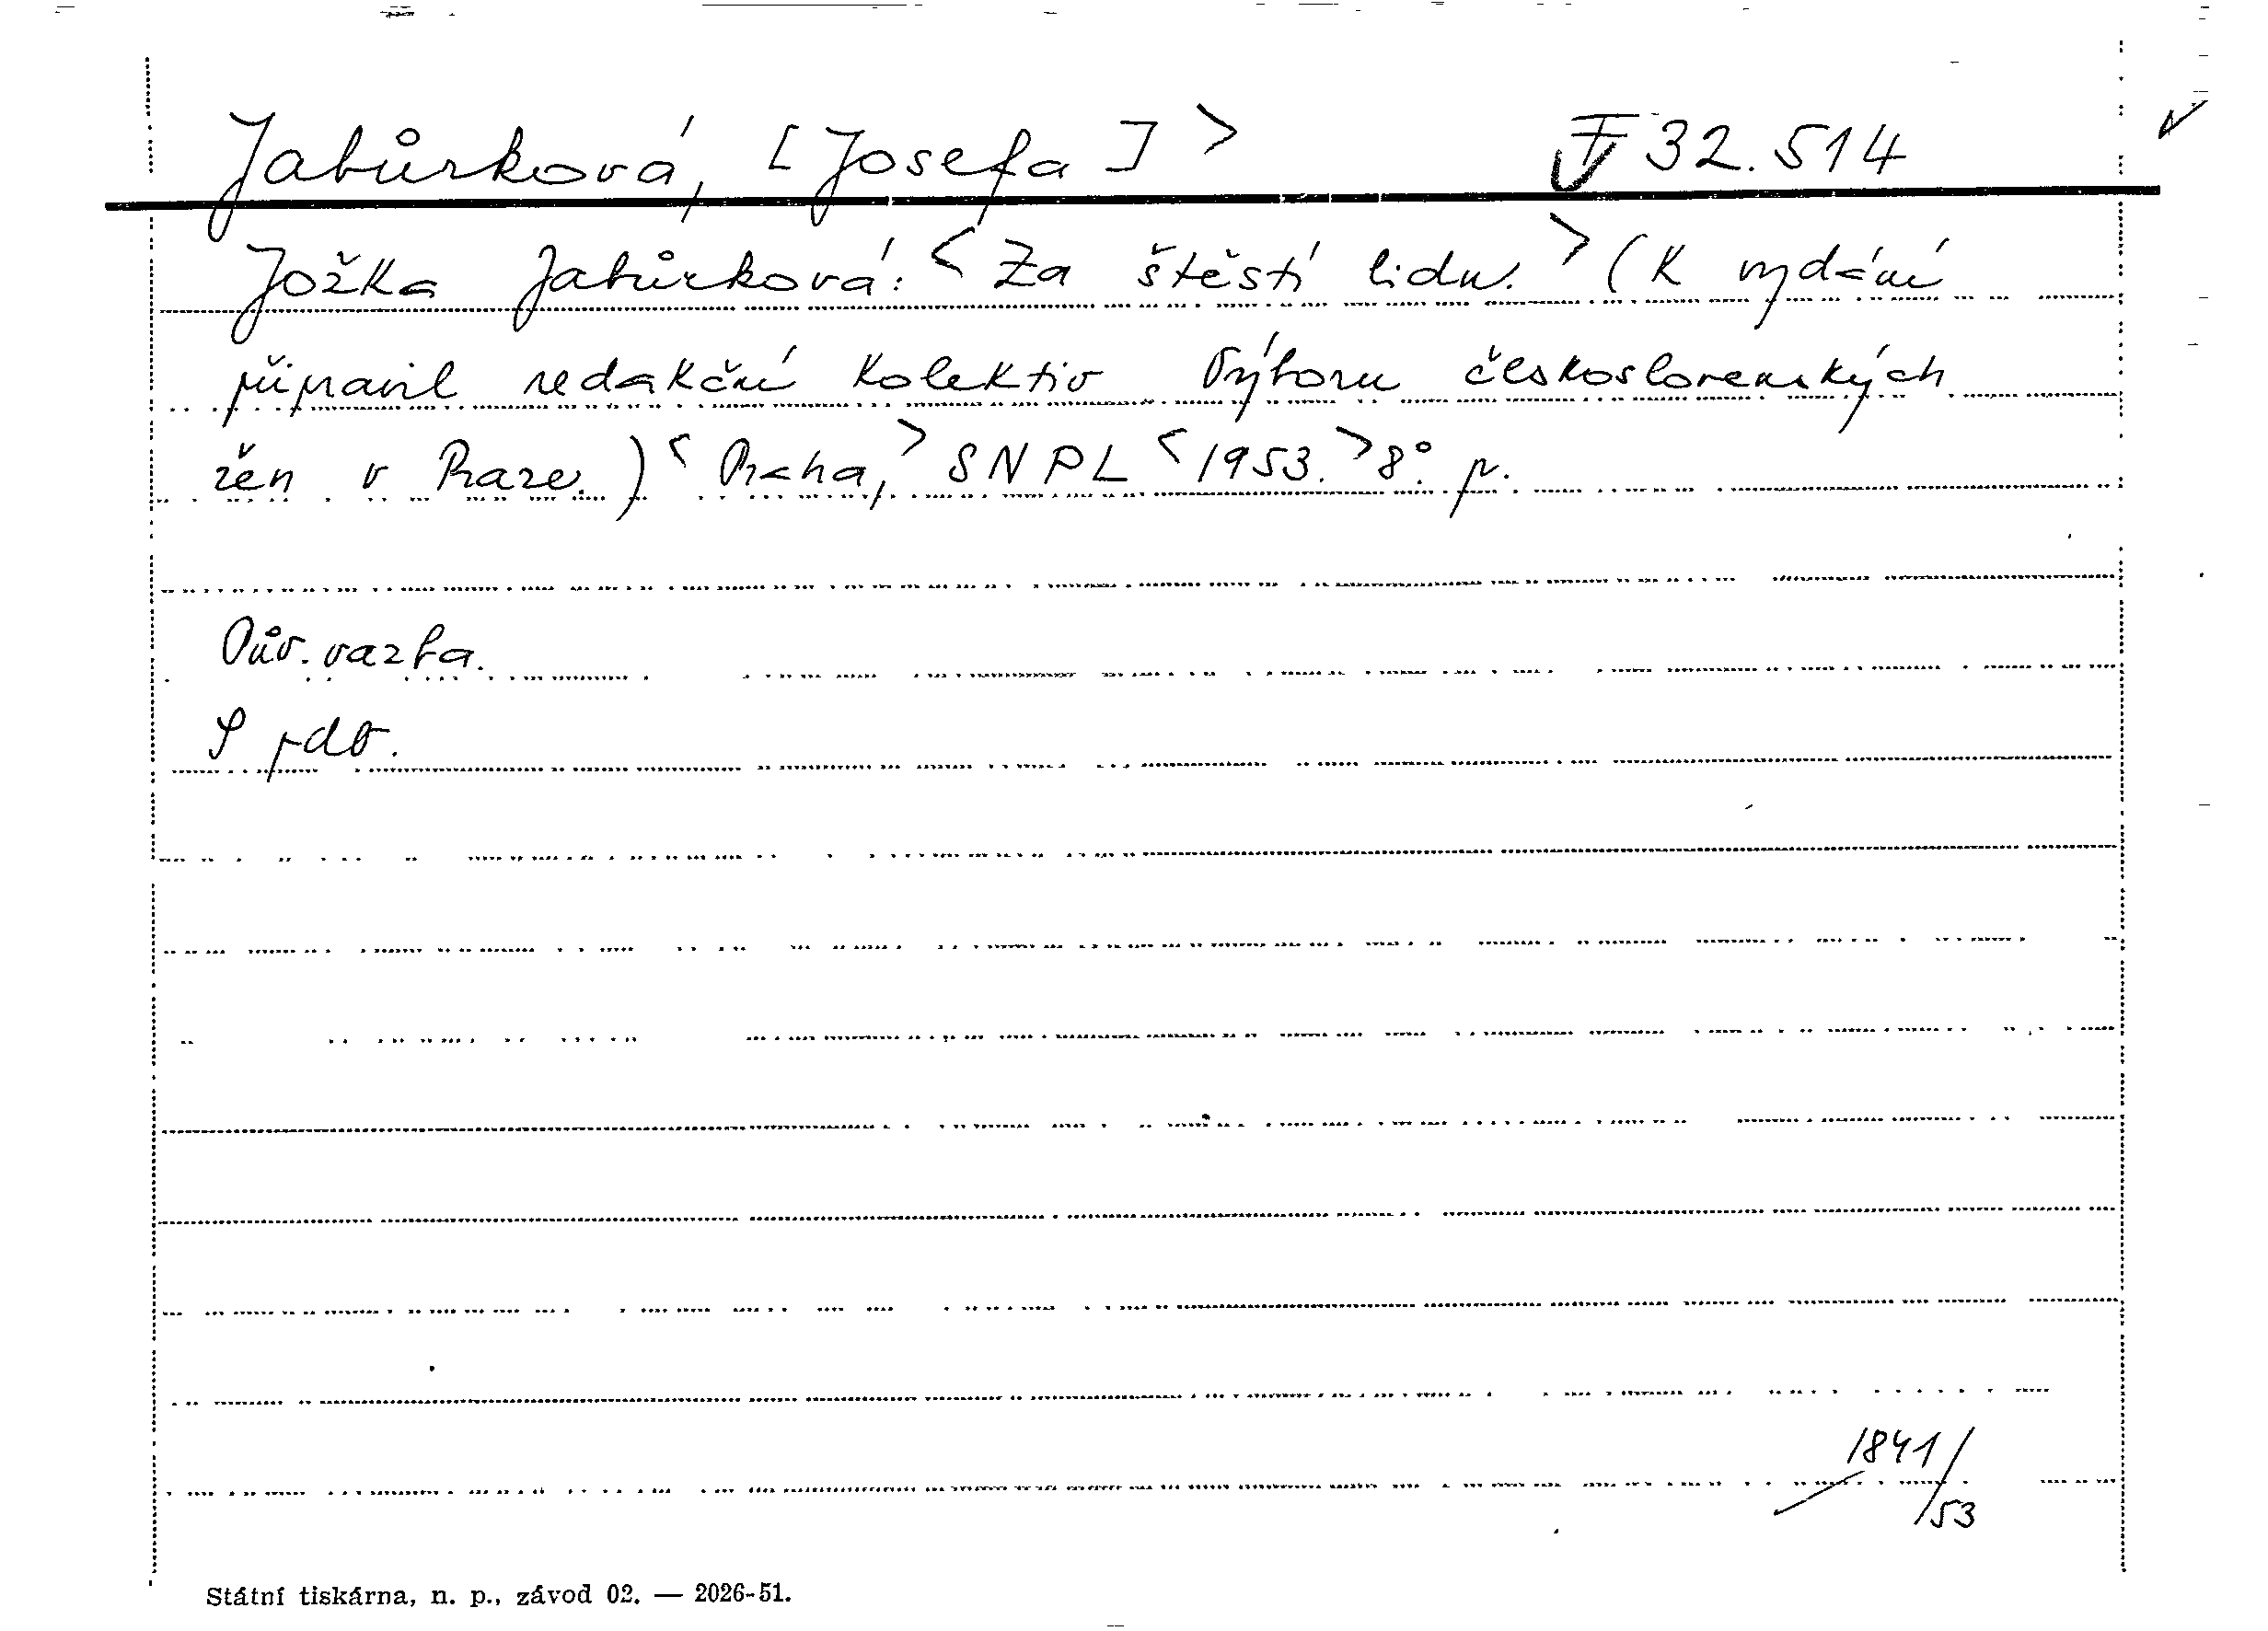 Jabůrková, [Josefa] > F 32.514
Jožka Jabůrková: <Za štěstí lidu.> (K vydání
připravil redakční kolektiv Výboru československých
žen v Praze.) <Praha,> SNPL <1953.> 8°. p.
Pův. vazba.
S pdb.
1841/
53
Státní tiskárna, n. p., závod 02. — 2026-51.